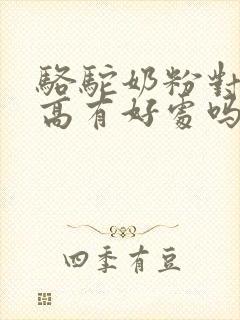 駱駝奶粉對
高有好處嗎
四季有豆